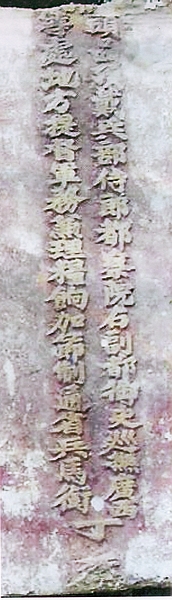 頭品頂戴兵部侍郎都察院右副都御史巡撫廣西
等處地方提督軍務兼理糧餉加節制通省兵馬銜
丁